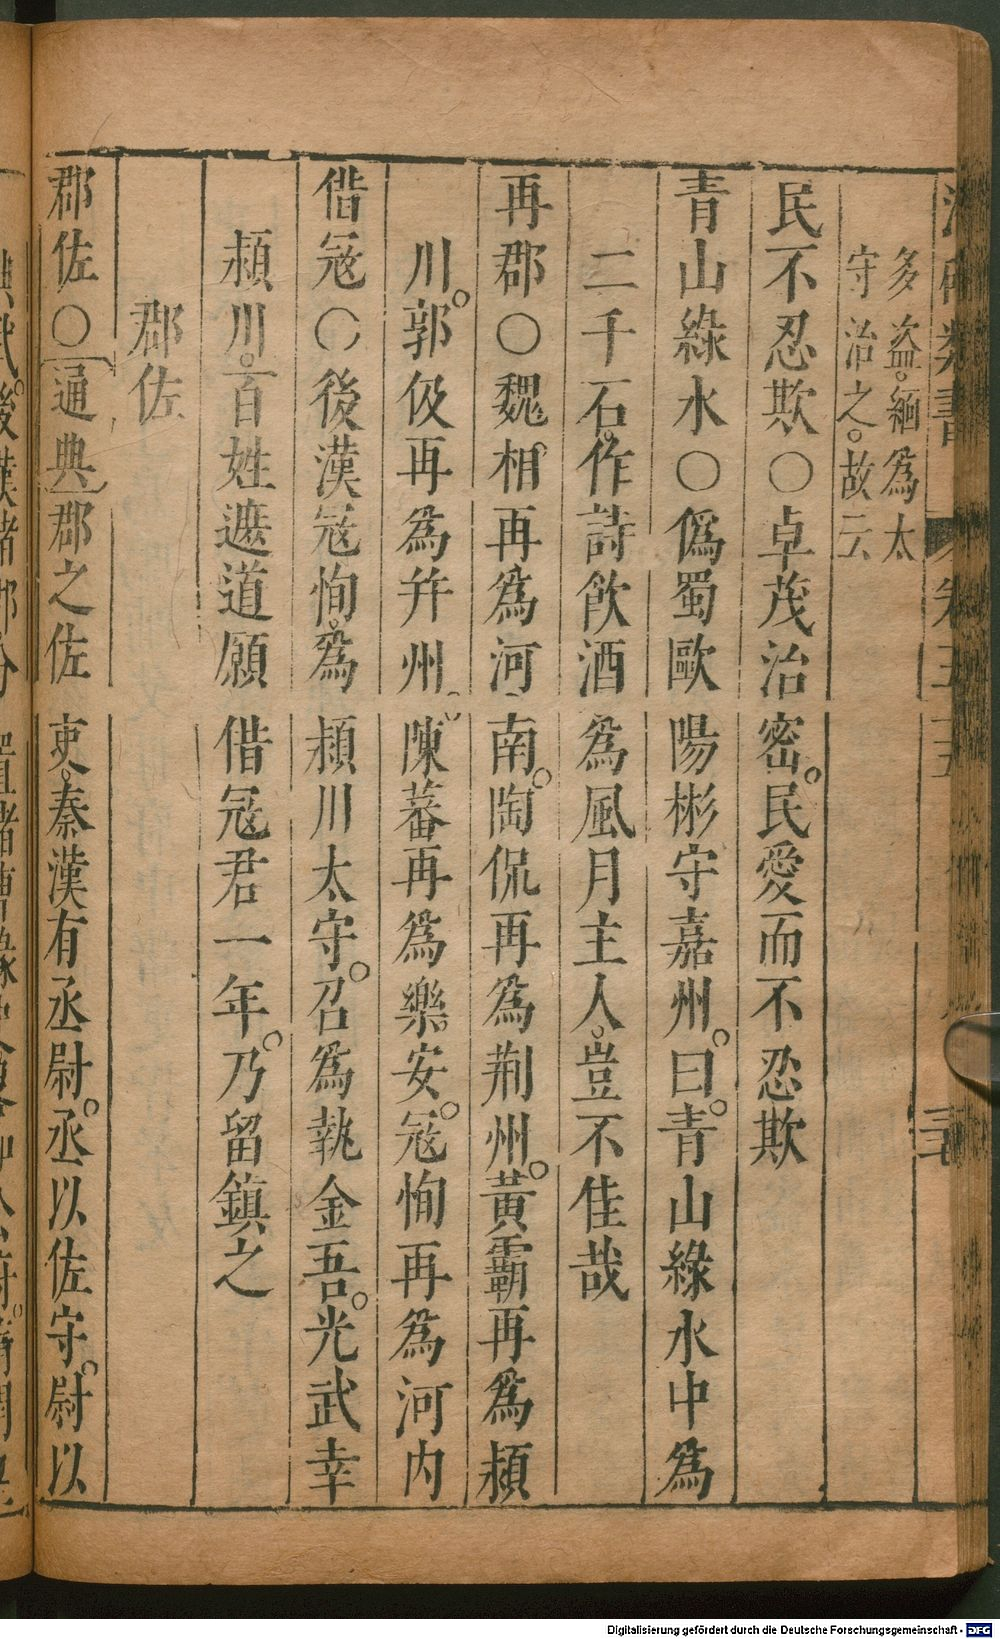 多盜緬爲太
守治之故云
民不忍欺〇卓茂治密民愛而不忍欺
青山綠水〇僞蜀歐陽彬守嘉州曰青山綠水中爲
二千石作詩飲酒爲風月主人豈不佳哉
再郡〇魏相再爲河南陶侃再爲荆州黃霸再爲潁
川郭伋再爲幷州陳蕃再爲樂安冦恂再爲河內
借冦〇後漢冦恂爲潁川太守召爲執金吾光武幸
潁川百姓遮道願借冦君一年乃留鎮之
郡佐
郡佐〇通典郡之佐吏秦漢有丞尉丞以佐守尉以
Digitalisierung gefördert durch die Deutsche Forschungsgemeinschaft - DFG